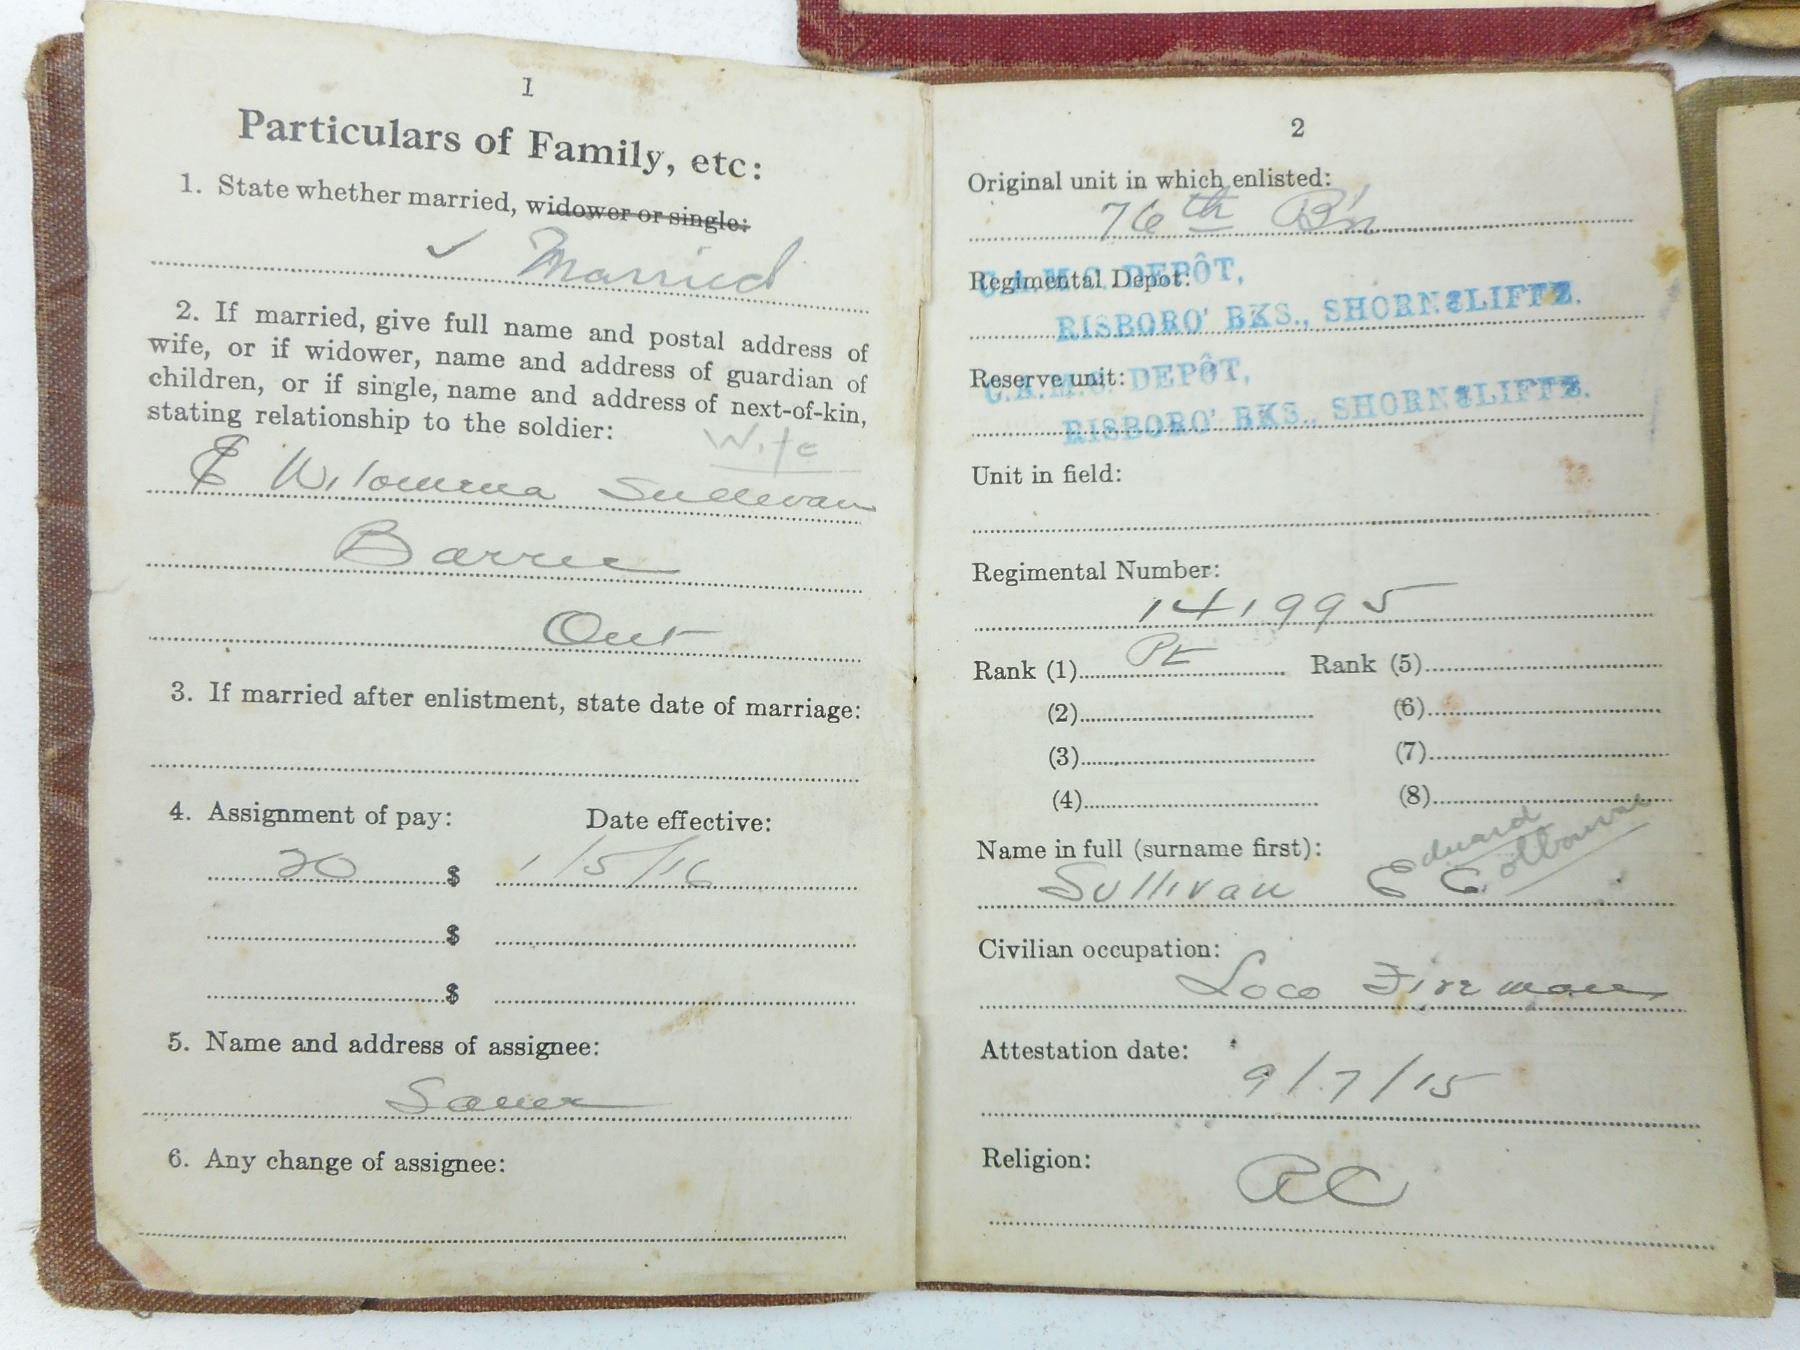 1
Particulars of Family, etc:
1. State whether married, widower or single:
✓ Married
2. If married, give full name and postal address of
wife, or if widower, name and address of guardian of
children, or if single, name and address of next-of-kin,
stating relationship to the soldier:
Wife
Sullivan
Barrie
Ont
3. If married after enlistment, state date of marriage:
4. Assignment of pay: Date effective:
20 $ 1/5/16
$
$
5. Name and address of assignee:
Same
6. Any change of assignee:
2
Original unit in which enlisted:
76th B'n
Regimental Depot:
C.A.M.C. DEPÔT,
RISBORO' BKS., SHORNCLIFFE.
Reserve unit:
C.A.M.C. DEPÔT,
RISBORO' BKS., SHORNCLIFFE.
Unit in field:
Regimental Number:
141995
Rank (1) Pt Rank (5)
(2) (6)
(3) (7)
(4) (8)
Name in full (surname first):
Edward
Sullivan E C
Civilian occupation:
Loco Fireman
Attestation date:
9/7/15
Religion:
RC